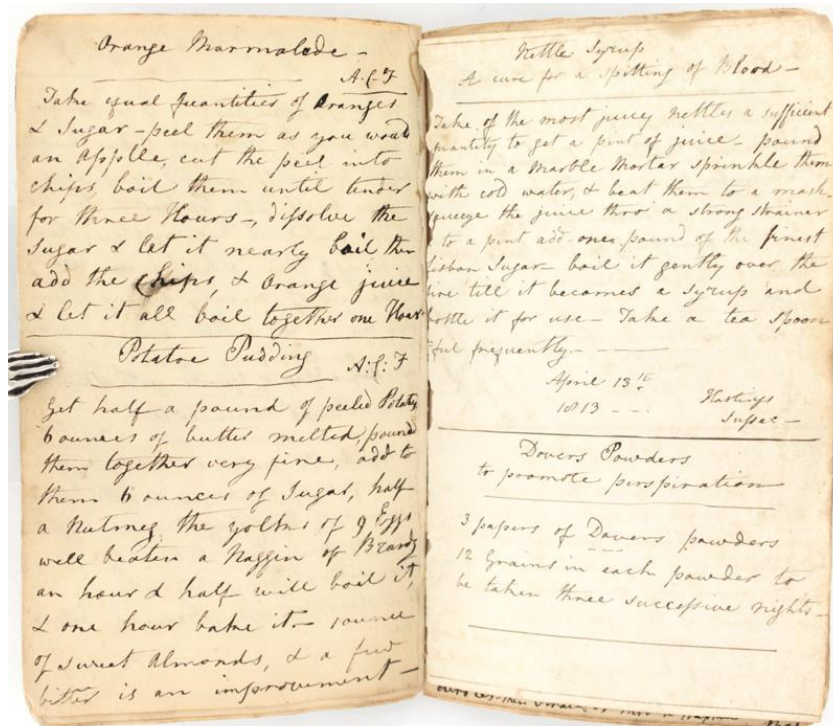 Orange Marmalade -
A.C.F
Take equal Quantities of Oranges
& Sugar - peel them as you would
an Appple, cut the peel into
chips, boil them until tender
for three Hours -, dissolve the
Sugar & let it nearly boil then
add the Chips, & Orange juice
& let it all boil together one Hour
Potatoe Pudding
A.C.F
Get half a pound of peeled Potatoes
6 ounces of butter melted, pound
them together very fine, add to
them 6 ounces of Sugar, half
a Nutmeg the yolks of 9 Eggs
well beaten a Naggin of Brandy
an hour & half will boil it,
& one hour bake it - 1 ounce
of sweet Almonds, & a few
bitter is an improvement -
Nettle Syrup
A cure for a spitting of Blood -
Take of the most juicy nettles a sufficient
quantity to get a pint of juice - pound
them in a Marble Mortar sprinkle them
with cold water, & beat them to a mash
squeeze the juice thro' a strong strainer
& to a pint add one pound of the finest
Lisbon Sugar - boil it gently over the
fire till it becomes a Syrup and
bottle it for use - Take a tea spoon
ful frequently. -
April 13th
1813 - -
Hastings
Sussex -
Dovers Powders
to promote perspiration
3 papers of Dovers powders
12 Grains in each powder to
be taken three successive nights -